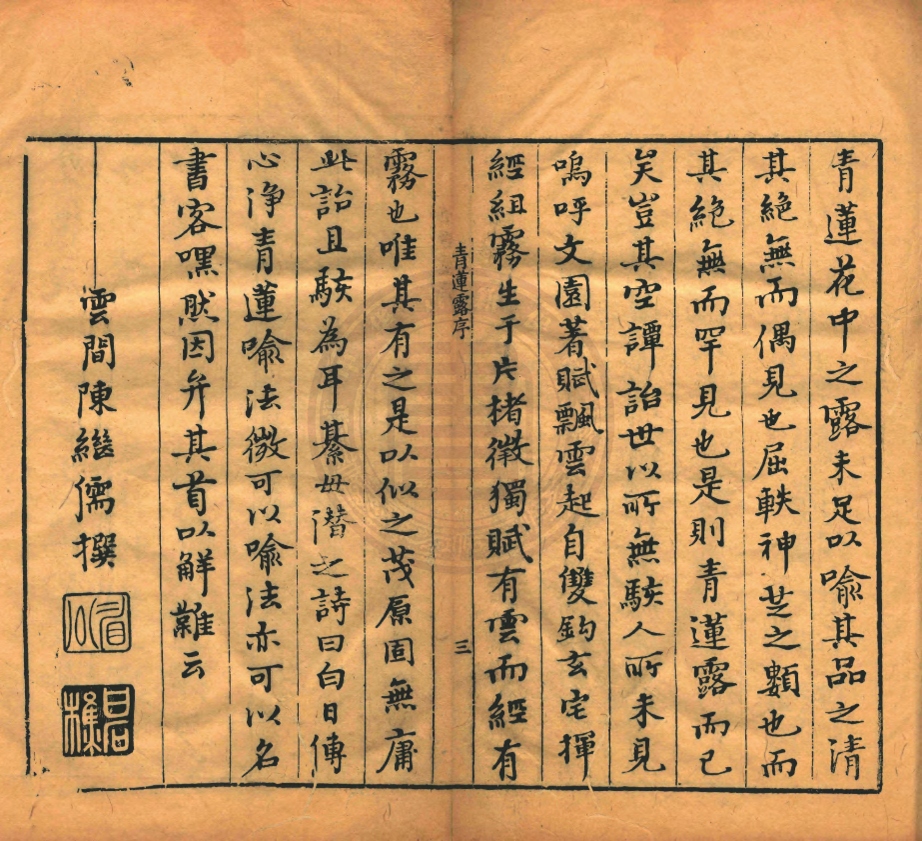 青蓮花中之露未足以喻其品之清
其絶無而偶見也屈軼神芝之類也而
其絶無而罕見也是則青蓮露而已
矣豈其空譚詒世以所無駭人所未見
嗚呼文園著賦飄雲起自雙鈎玄宅揮
經組霧生于片楮徵獨賦有雲而經有
青蓮露序
三
霧也唯其有之是以似之茂原固無庸
此詒且駭為耳綦毋潛之詩曰白日傳
心浄青蓮喻法微可以喻法亦可以名
書客嘿然因弁其首以解難云
雲間陳繼儒撰
眉公